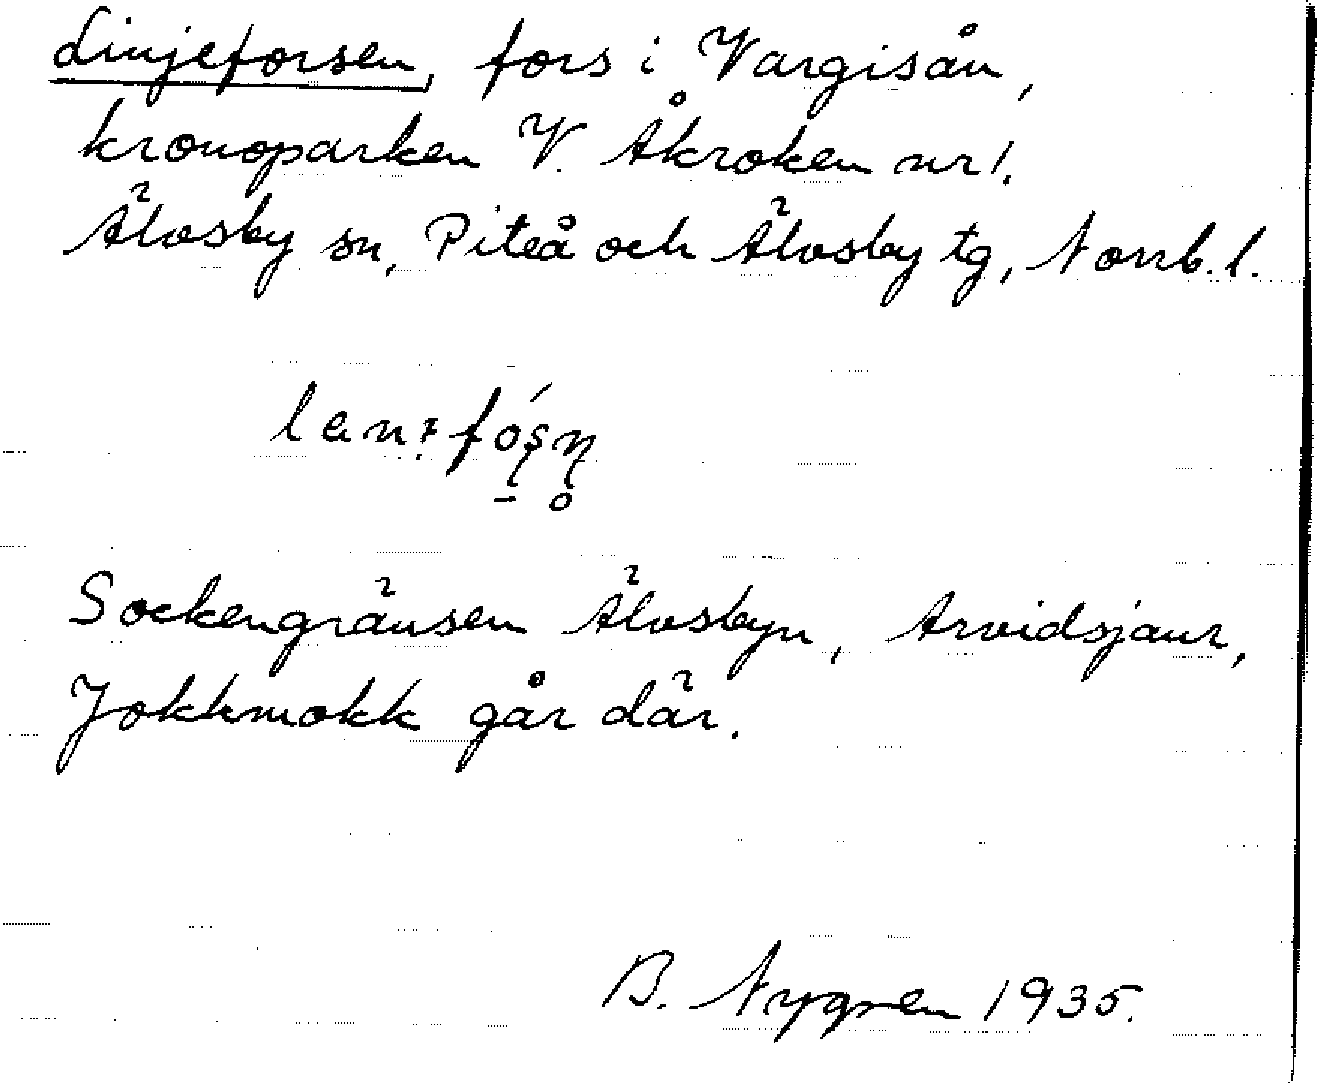 Linjeforsen, fors i Vargisån,
kronoparken V. Åkroken nr 1.
Älvsby sn, Piteå och Älvsby tg, Norrb. l.
Sockengränsen Älvsbyn, Arvidsjaur,
Jokkmokk går där.
B. Nygren 1935.